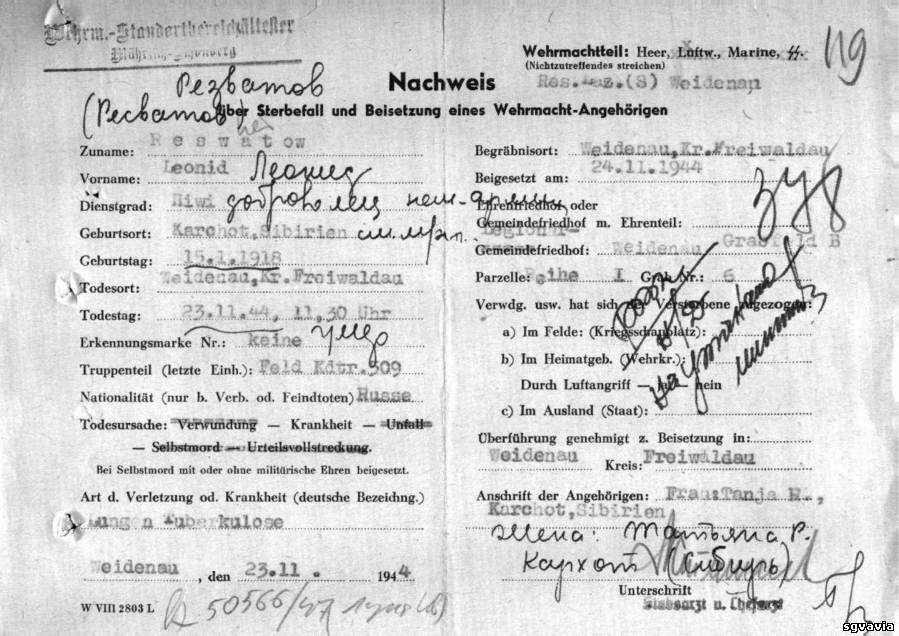 Wehrm.-Standortbereichältester
Mähring-Schönberg
Wehrmachtteil: Heer, Luftw., Marine, SS.
(Nichtzutreffendes streichen)
Res.-Laz.(S) Weidenau
119
Резватов
Nachweis
(Ресватов)
über Sterbefall und Beisetzung eines Wehrmacht-Angehörigen
Zuname: Reswatow
Vorname: Leonid Леонид
Dienstgrad: Hiwi доброволец нем. армии
Geburtsort: Karchot,Sibirien
Geburtstag: 15.1.1918
Todesort: Weidenau,Kr.Freiwaldau
Todestag: 23.11.44, 11,30 Uhr
Erkennungsmarke Nr.: keine
Truppenteil (letzte Einh.): Feld Kdtr.509
Nationalität (nur b. Verb. od. Feindtoten) Russe
Todesursache: Verwundung — Krankheit — Unfall
— Selbstmord — Urteilsvollstreckung.
Bei Selbstmord mit oder ohne militärische Ehren beigesetzt.
Art d. Verletzung od. Krankheit (deutsche Bezeichng.)
Lungen Tuberkulose
Weidenau, den 23.11. 1944
W VIII 2803 L
50566/47
Begräbnisort: Weidenau,Kr.Freiwaldau
Beigesetzt am: 24.11.1944
Ehrenfriedhof oder
Gemeindefriedhof m. Ehrenteil:
Gemeindefriedhof: Weidenau Grabfeld B
Parzelle: Reihe I Grab Nr.: 6
Verwdg. usw. hat sich der Verstorbene zugezogen:
a) Im Felde: (Kriegsschauplatz):
b) Im Heimatgeb. (Wehrkr.):
Durch Luftangriff — ja — nein
c) Im Ausland (Staat):
Überführung genehmigt z. Beisetzung in:
Weidenau Kreis: Freiwaldau
Anschrift der Angehörigen: Frau:Tanja R.,
Karchot,Sibirien
Жена: Татьяна Р.
Кархот (Сибирь)
Unterschrift
Stabsarzt u. Chefarzt
sgvavia